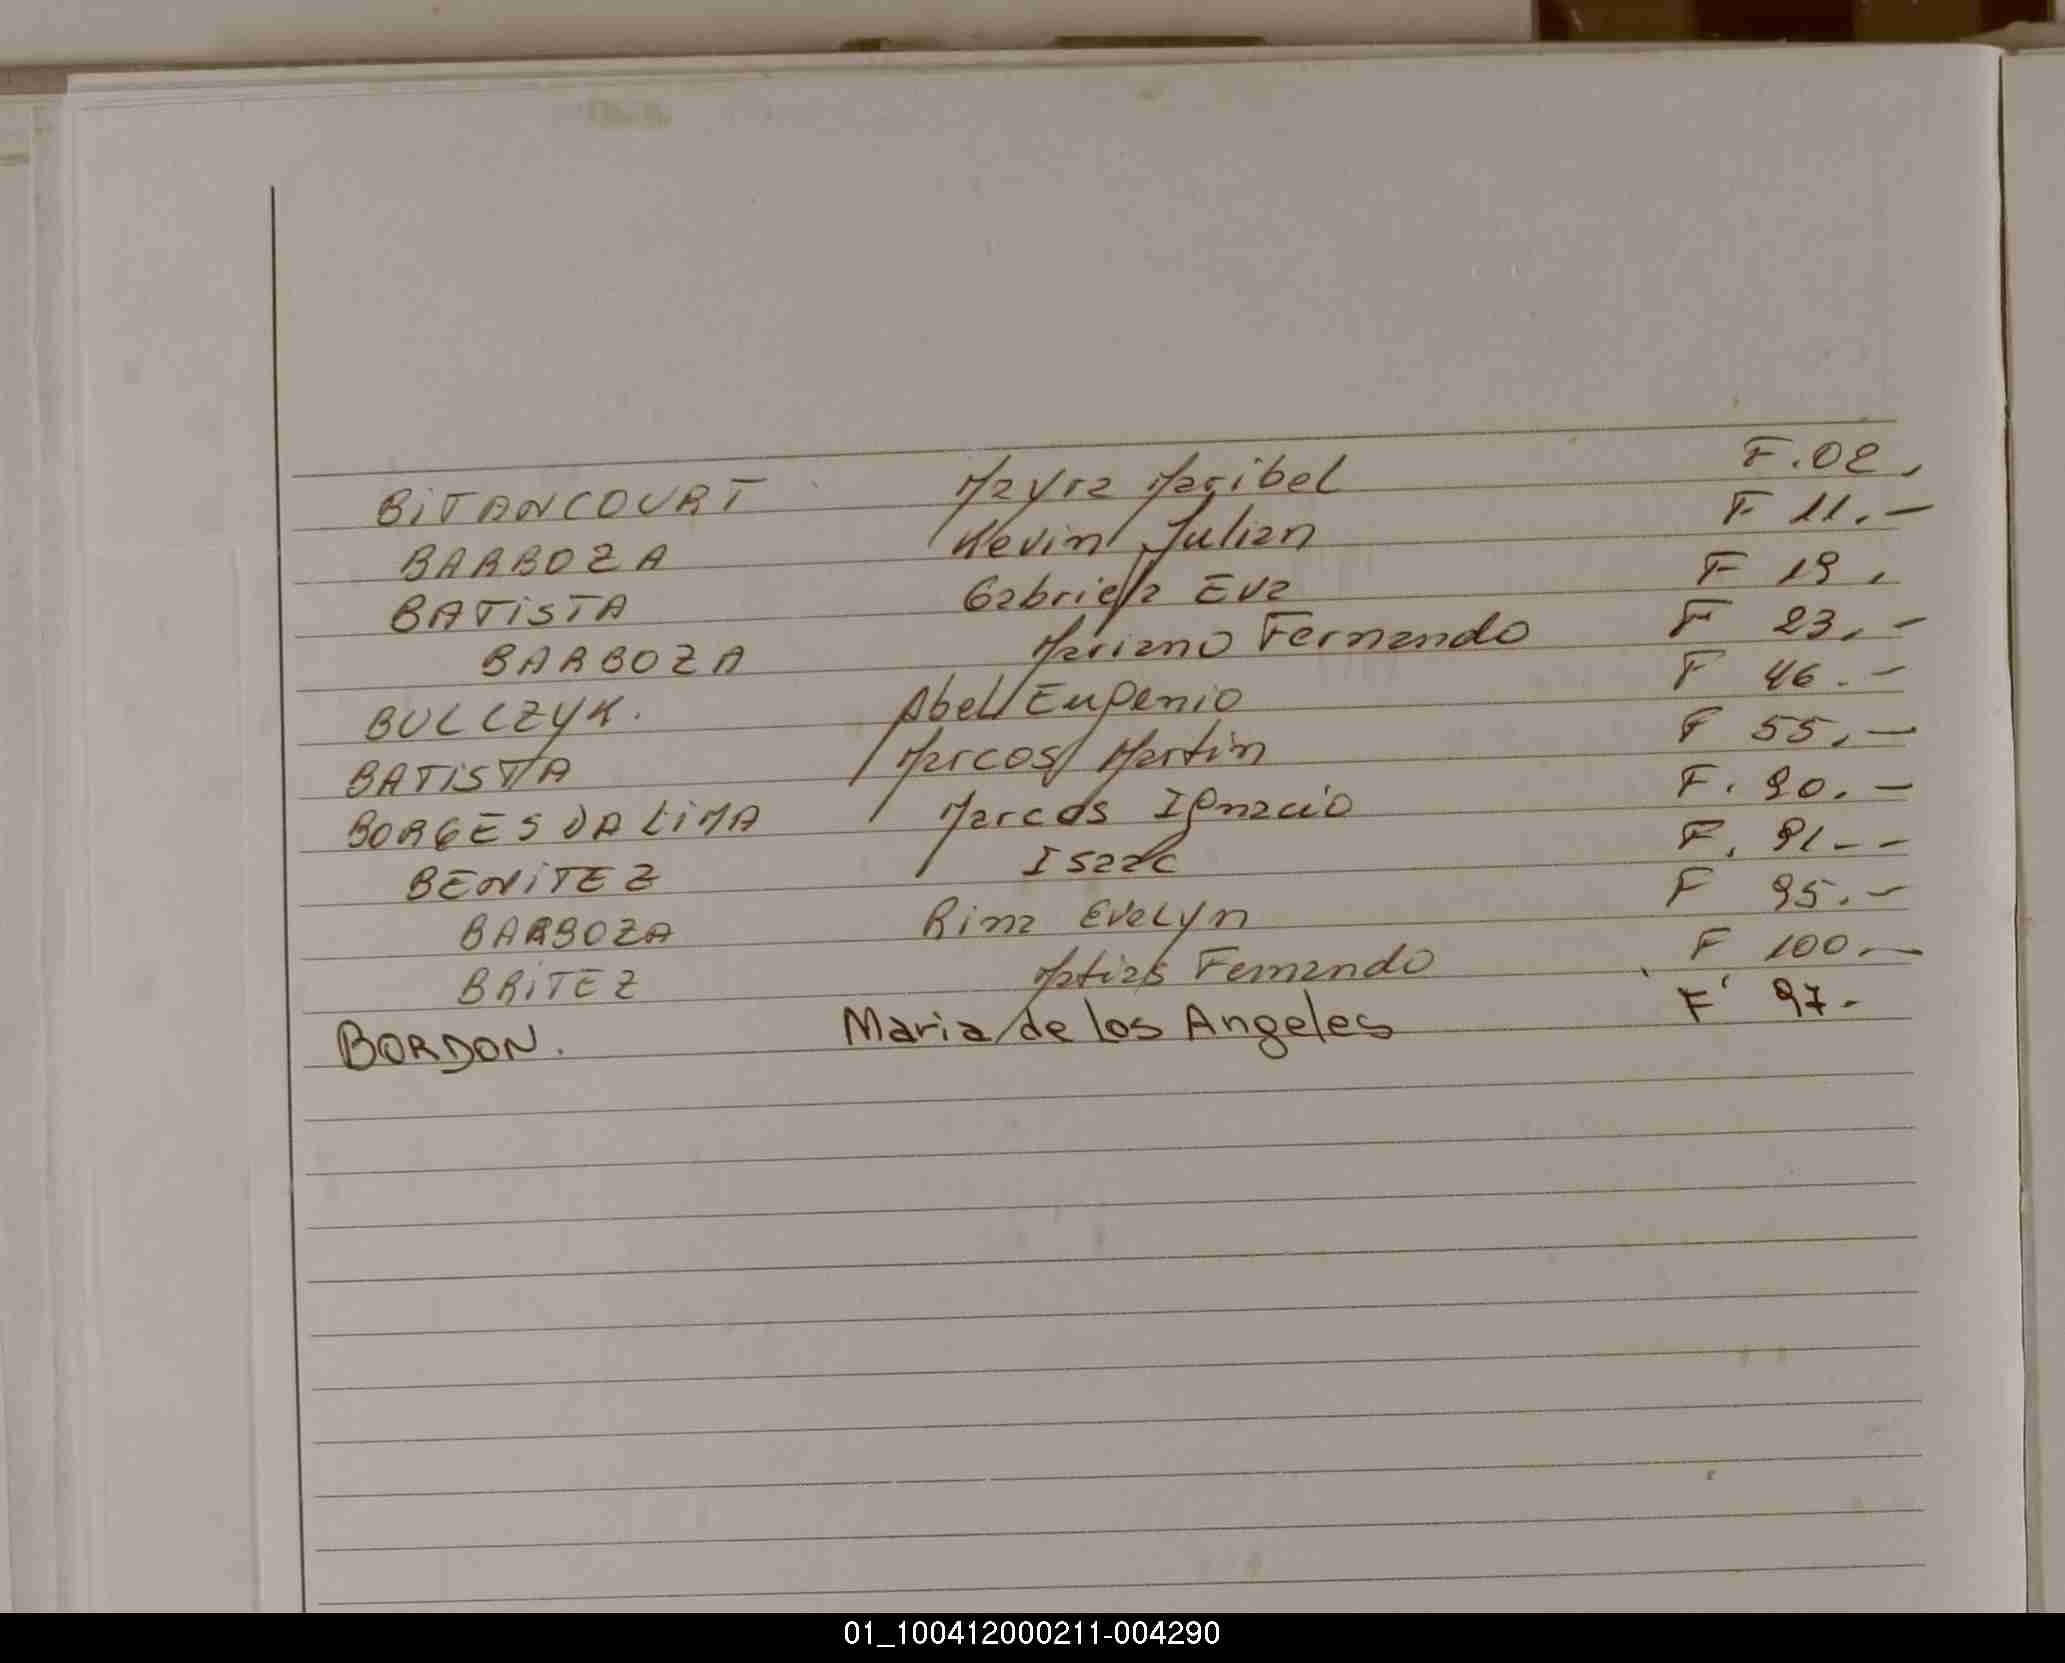 BiTANCOURT Mayra Maribel F.02.
BARBOZA Kevin Julian F 11.-
BATiSTA Gabriela Eva F 19.
BARBOZA Mariano Fernando F 23.-
BULCZYK. Abel Eugenio F 46.-
BATiSTA Marcos Martin F 55.-
BORGES DA LiMA Marcos Ignacio F. 90.-
BENiTEZ Isaac F. 91.--
BARBOZA Rina Evelyn F 95.-
BRiTEZ Matias Fernando F 100.-
BORDON. Maria de los Angeles F 97-
01_100412000211-004290